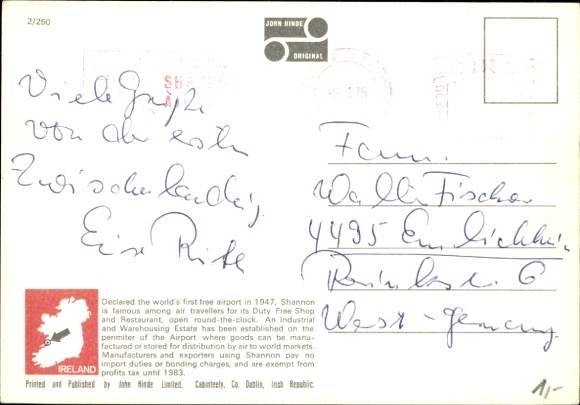 2/250
JOHN HINDE
ORIGINAL
Viele Grüße
von der ersten
Zwischenlandung
Fam.
Walter Fischer
4495 Emlichheim
6
West-Germany
Declared the world's first free airport in 1947, Shannon
is famous among air travellers for its Duty Free Shop
and Restaurant, open round-the-clock. An Industrial
and Warehousing Estate has been established on the
perimeter of the Airport where goods can be manu-
factured or stored for distribution by air to world markets.
Manufacturers and exporters using Shannon pay no
import duties or bonding charges, and are exempt from
profits tax until 1983.
IRELAND
Printed and Published by John Hinde Limited, Cabinteely, Co. Dublin, Irish Republic.
1,-